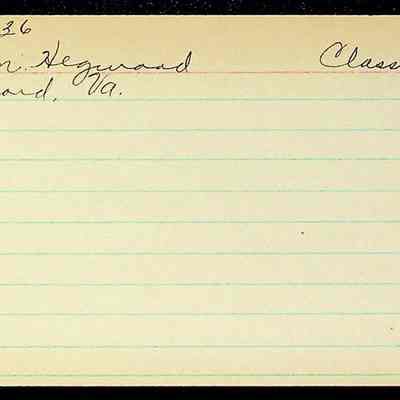 36
m. Hegwood Class
ord, Va.